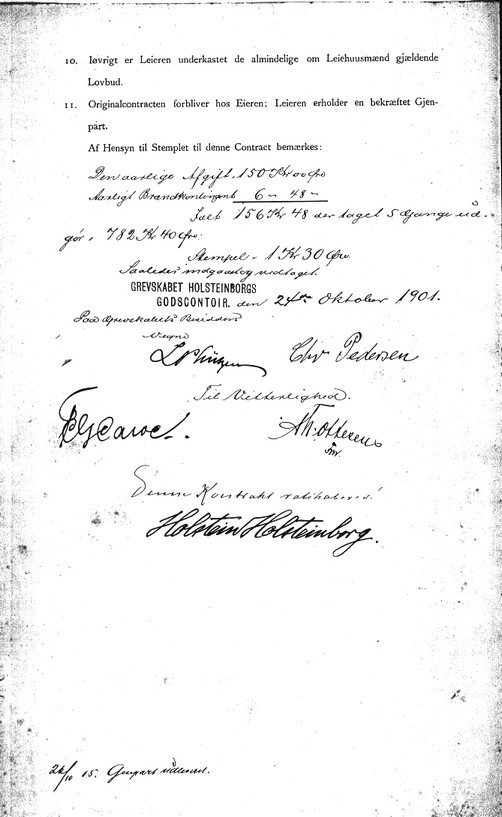 10. Iøvrigt er Leieren underkastet de almindelige om Leiehuusmænd gjældende
Lovbud.
11. Originalcontracten forbliver hos Eieren; Leieren erholder en bekræftet Gjen-
part.
Af Hensyn til Stemplet til denne Contract bemærkes:
Den aarlige Afgift. 150 Kr 00 Øre
Aarligt Brandkontingent 6 - 48 -
Ialt 156 Kr 48 der taget 5 Gange ud-
gør, 782 Kr 40 Øre.
Stempel - 1 Kr 30 Øre
Saaledes indgaaet og vedtaget.
GREVSKABET HOLSTEINBORGS
GODSCONTOIR, den 24de Oktober 1901.
Paa Grevskabets Besidders
Vegne
Chr Pedersen
Til Vitterlighed.
Denne Kontrakt ratihaberes!
Holstein Holsteinborg.
15. Genpart udleveret.